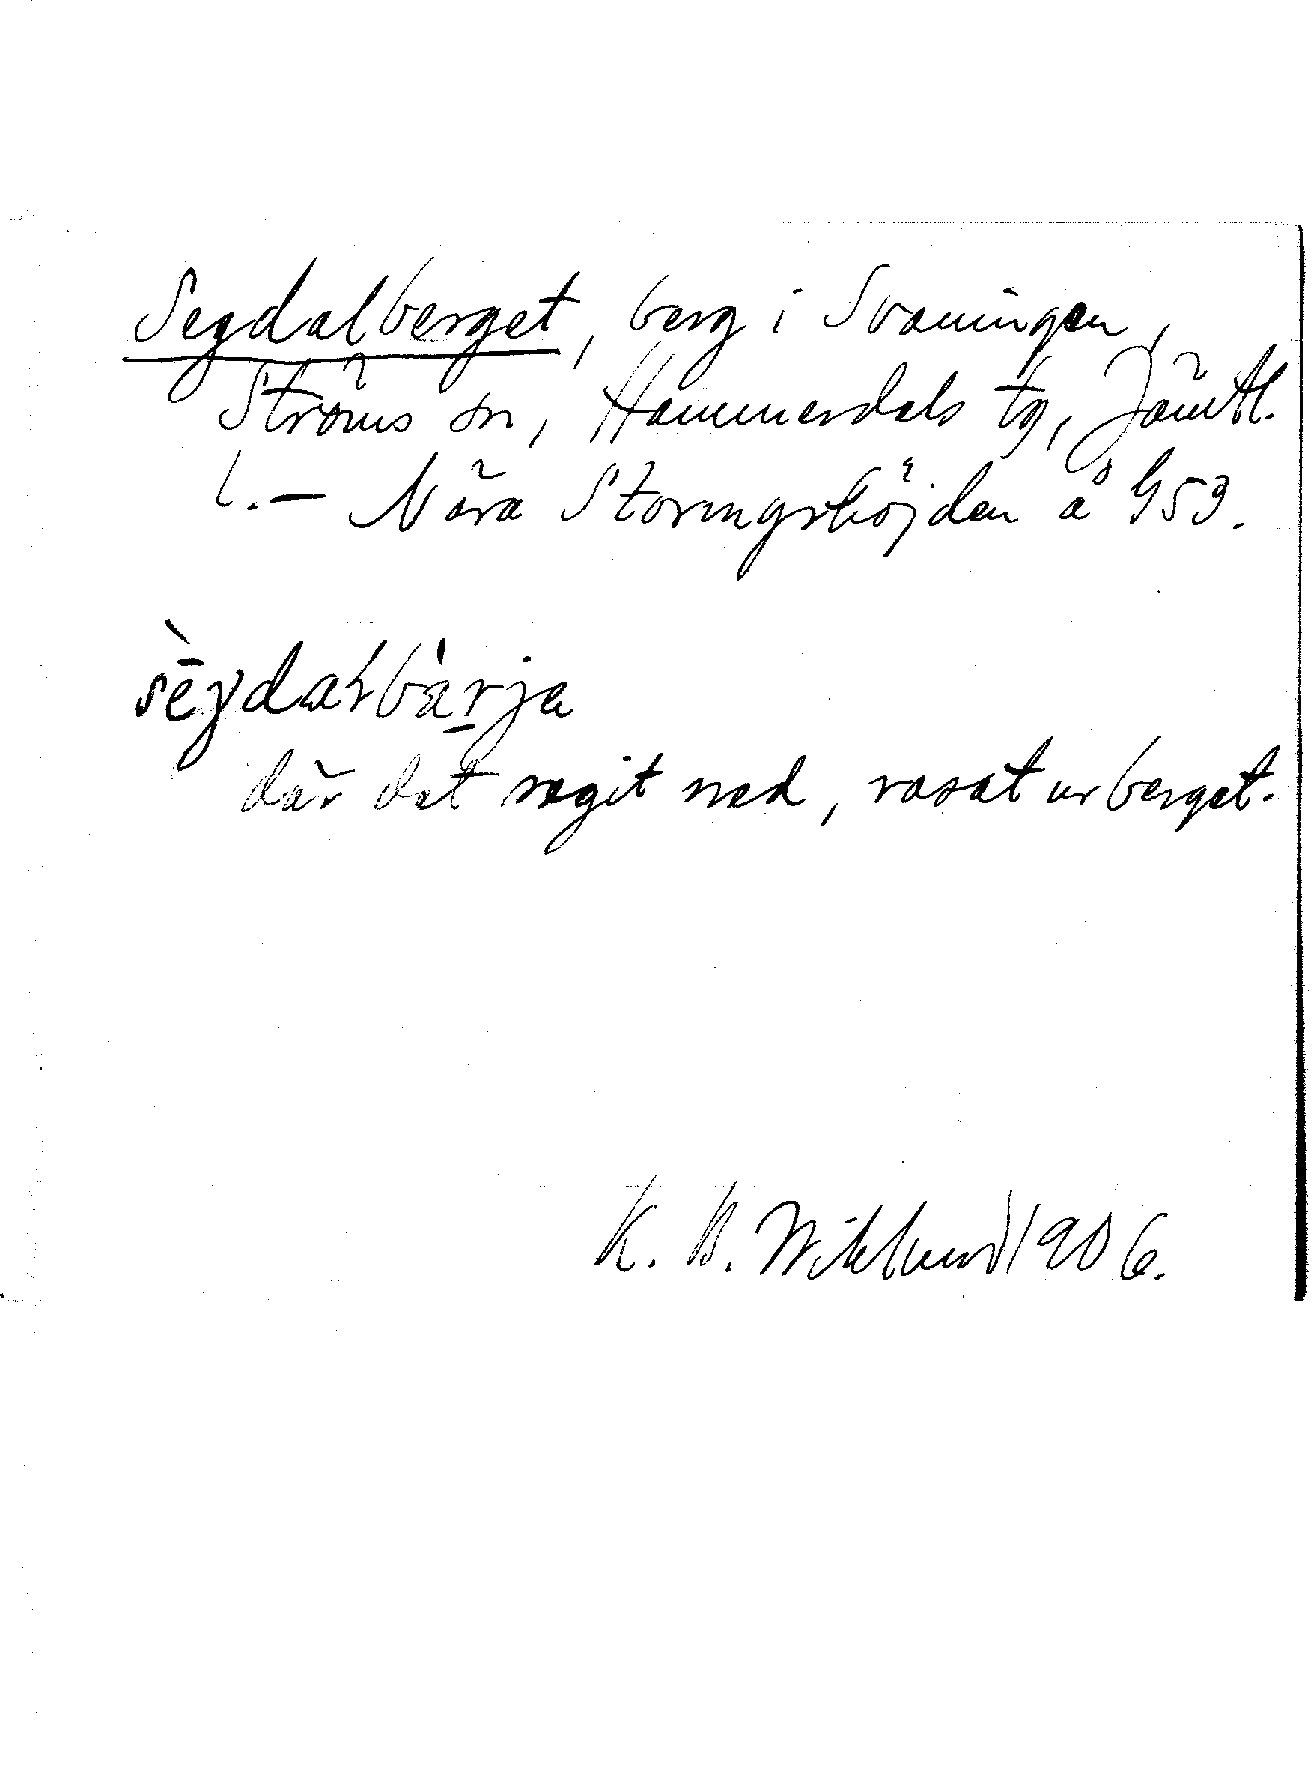 Segdalberget, berg i Svaningen,
Ströms sn, Hammerdals tg, Jämtl.
l. – Nära Storringshöjden å G53.
sèɣdaɫbàrja
där det segit ned, rasat ur berget.
K. B. Wiklund 1906.